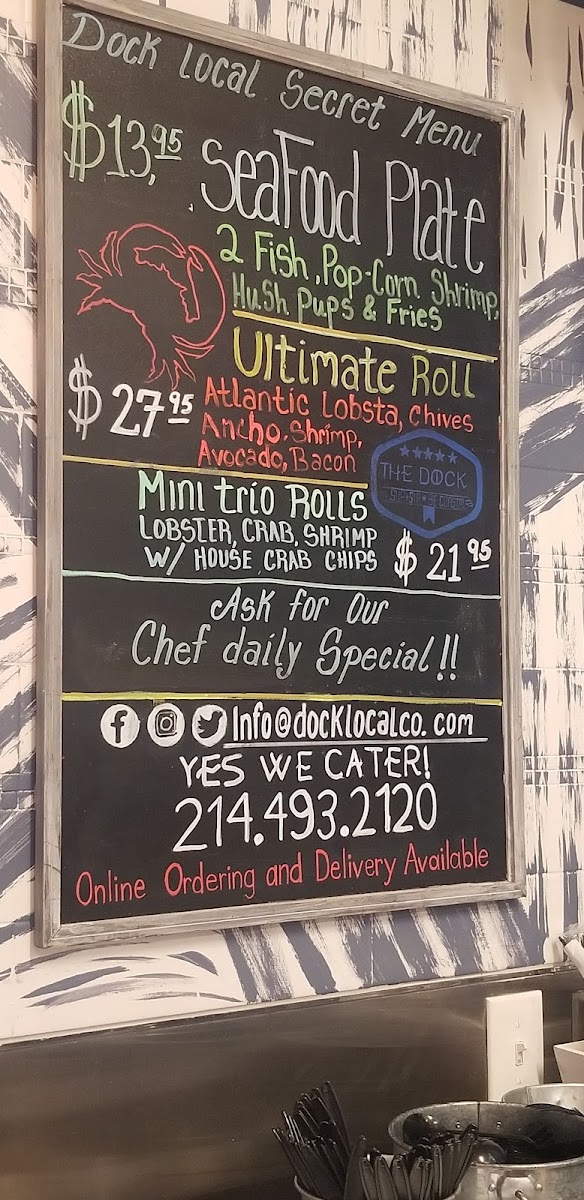 Dock Local Secret Menu
$13,95 SeaFood Plate
2 Fish, Pop-Corn Shrimp,
Hush Pups & Fries
Ultimate Roll
$27 95
Atlantic Lobsta, Chives
Ancho, Shrimp,
Avocado, Bacon
THE DOCK
Mini trio Rolls
LOBSTER, CRAB, SHRIMP
W/ HOUSE CRAB CHIPS
$21 95
Ask for Our
Chef daily Special!!
Info@docklocalco.com
YES WE CATER!
214.493.2120
Online Ordering and Delivery Available